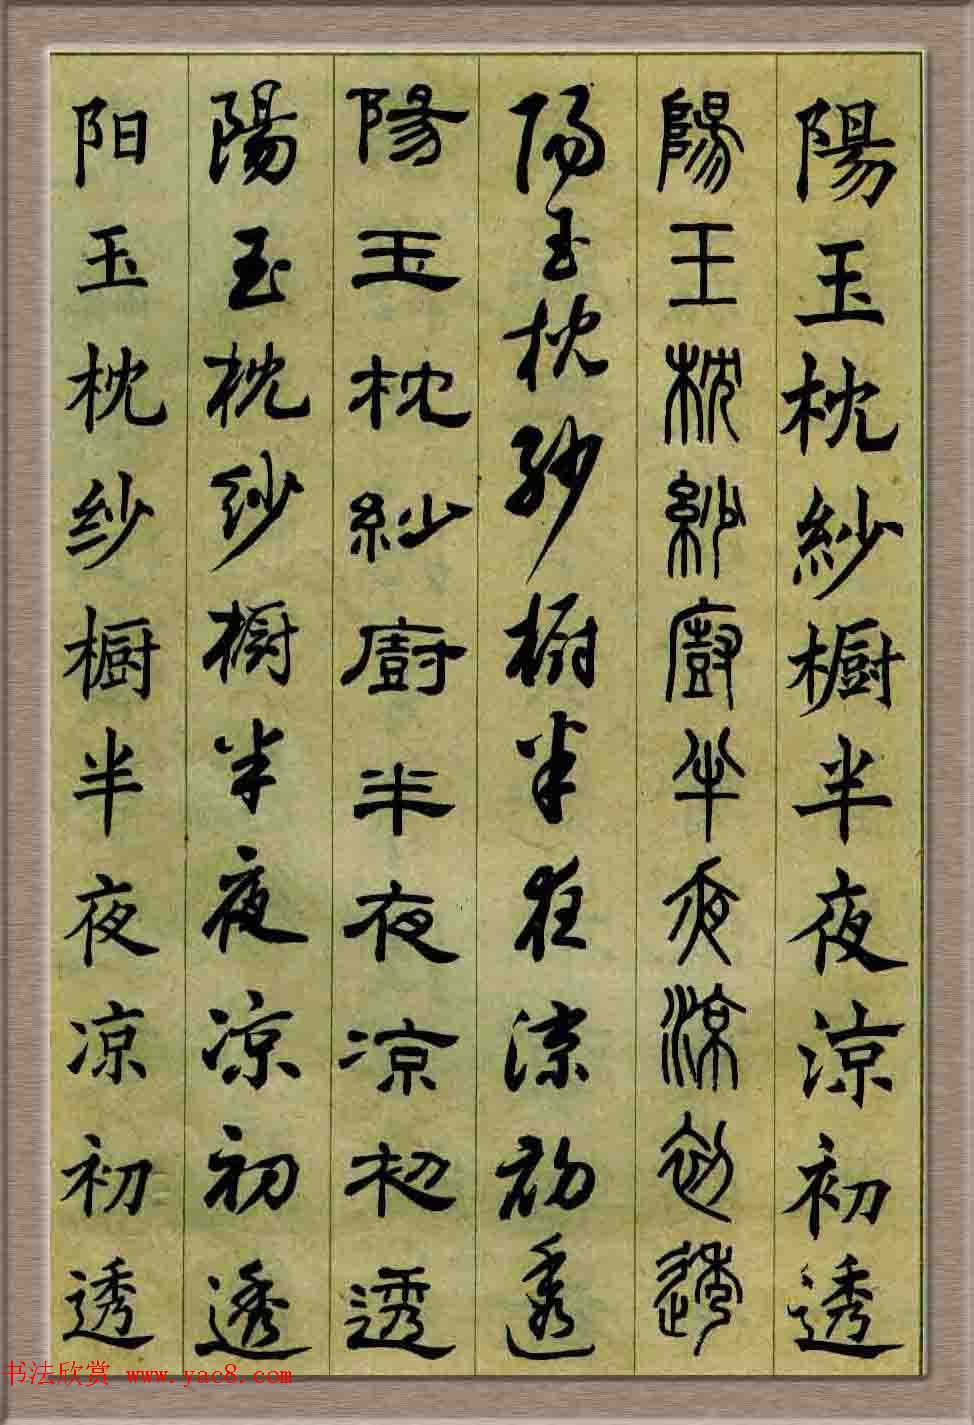 陽玉枕紗橱半夜涼初透
陽王枕紗廚半夜涼初透
陽玉枕紗橱半夜涼初透
陽玉枕紗廚半夜凉初透
陽玉枕纱橱半夜凉初透
阳玉枕纱橱半夜凉初透
书法欣赏 www.yac8.com